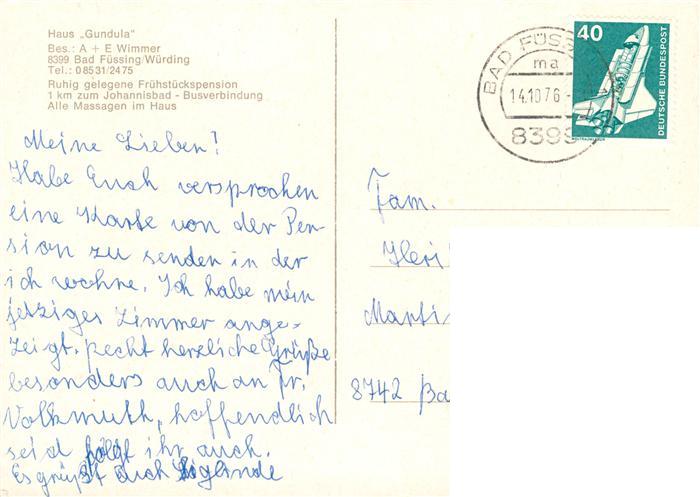 Haus „Gundula"
Bes.: A + E Wimmer
8399 Bad Füssing/Würding
Tel.: 08531/2475
Ruhig gelegene Frühstückspension
1 km zum Johannisbad - Busverbindung
Alle Massagen im Haus
Meine Lieben!
Habe Euch versprochen
eine Karte von der Pen-
sion zu senden in der
ich wohne. Ich habe mein
jetziges Zimmer ange-
zeigt. recht herzliche Grüße
besonders auch an Fr.
Volkmuth, hoffendlich
seid folgt ihr auch.
Es grüßt euch Siglinde
BAD FÜSS
ma
14.10.76
8399
40
DEUTSCHE BUNDESPOST
Fam.
Heri
Marti
8742 Ba